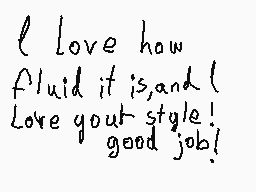 I Love how
fluid it is, and I
Love your style!
good job!